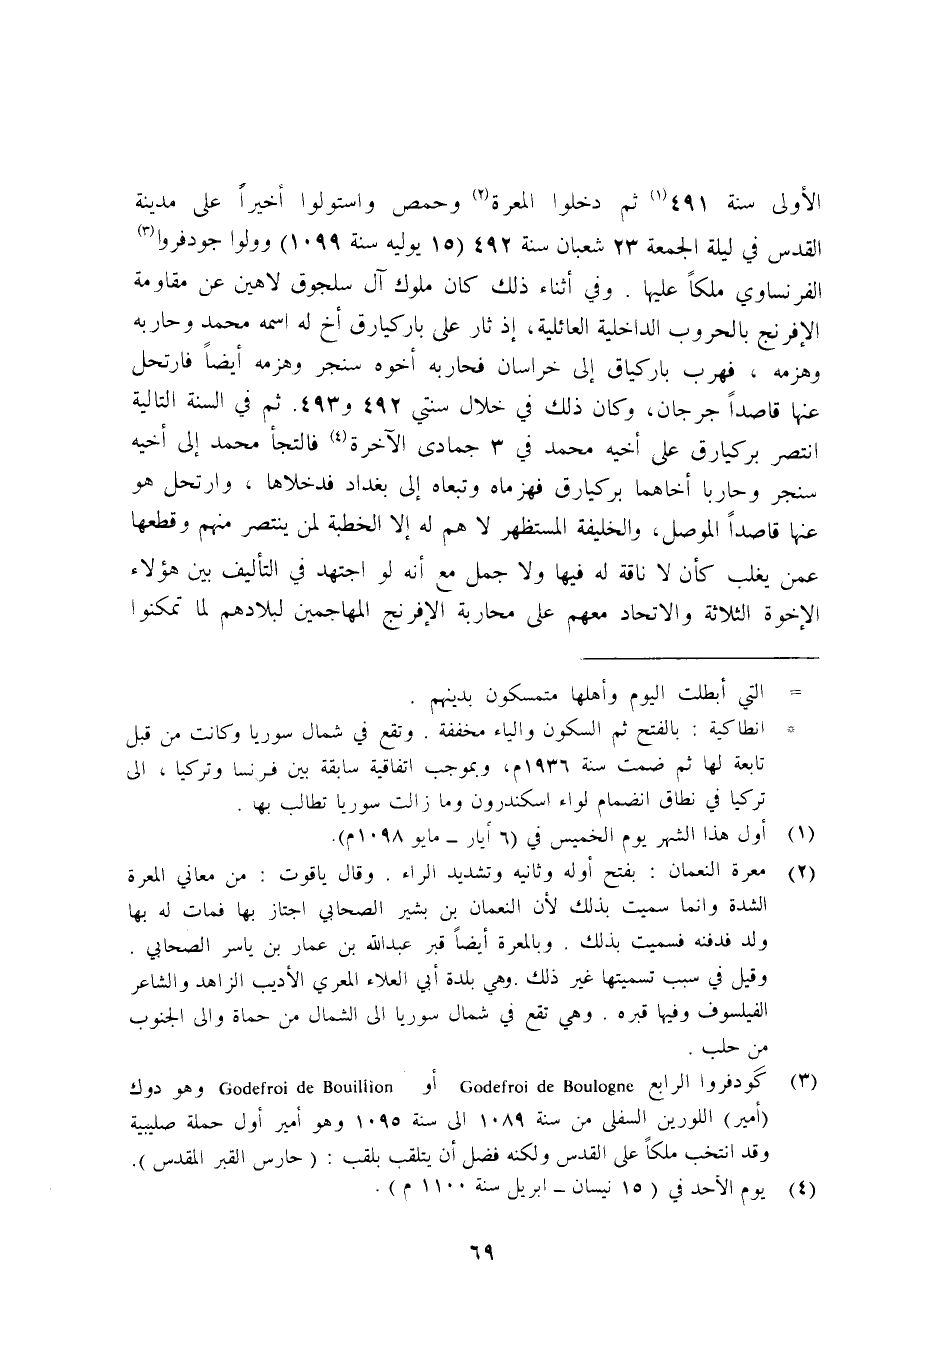 الأولى سنة ٤٩١(١) ثم دخلوا المعرة(٢) وحمص واستولوا أخيراً على مدينة
القدس في ليلة الجمعة ٢٣ شعبان سنة ٤٩٢ (١٥ يوليه سنة ١٠٩٩) وولوا جودفروا(٣)
الفرنساوي ملكاً عليها . وفي أثناء ذلك كان ملوك آل سلجوق لاهين عن مقاومة
الإفرنج بالحروب الداخلية العائلية، إذ ثار على باركيارق أخ له اسمه محمد وحاربه
وهزمه ، فهرب باركياق إلى خراسان فحاربه أخوه سنجر وهزمه أيضاً فارتحل
عنها قاصداً جرجان، وكان ذلك في خلال سنتي ٤٩٢ و٤٩٣. ثم في السنة التالية
انتصر بركيارق على أخيه محمد في ٣ جمادى الآخرة(٤) فالتجأ محمد إلى أخيه
سنجر وحاربا أخاهما بركيارق فهزماه وتبعاه إلى بغداد فدخلاها ، وارتحل هو
عنها قاصداً الموصل، والخليفة المستظهر لا هم له إلا الخطبة لمن ينتصر منهم وقطعها
عمن يغلب كأن لا ناقة له فيها ولا جمل مع أنه لو اجتهد في التأليف بين هؤلاء
الإخوة الثلاثة والاتحاد معهم على محاربة الإفرنج المهاجمين لبلادهم لما تمكنوا
= التي أبطلت اليوم وأهلها متمسكون بدينهم .
* انطاكية : بالفتح ثم السكون والياء مخففة . وتقع في شمال سوريا وكانت من قبل
تابعة لها ثم ضمت سنة ١٩٣٦م، وبموجب اتفاقية سابقة بين فرنسا وتركيا ، الى
تركيا في نطاق انضمام لواء اسكندرون وما زالت سوريا تطالب بها .
(١) أول هذا الشهر يوم الخميس في (٦ أيار ــ مايو ١٠٩٨م).
(٢) معرة النعمان : بفتح أوله وثانيه وتشديد الراء . وقال ياقوت : من معاني المعرة
الشدة وانما سميت بذلك لأن النعمان بن بشير الصحابي اجتاز بها فمات له بها
ولد فدفنه فسميت بذلك . وبالمعرة أيضاً قبر عبدالله بن عمار بن ياسر الصحابي .
وقيل في سبب تسميتها غير ذلك .وهي بلدة أبي العلاء المعري الأديب الزاهد والشاعر
الفيلسوف وفيها قبره . وهي تقع في شمال سوريا الى الشمال من حماة والى الجنوب
من حلب .
(٣) گودفروا الرابع Godefroi de Boulogne أو Godefroi de Bouillion وهو دوك
(أمير) اللورين السفلى من سنة ١٠٨٩ الى سنة ١٠٩٥ وهو أمير أول حملة صليبية
وقد انتخب ملكاً على القدس ولكنه فضل أن يتلقب بلقب : ( حارس القبر المقدس ).
(٤) يوم الأحد في ( ١٥ نيسان ــ ابريل سنة ١١٠٠ م ) .
٦٩